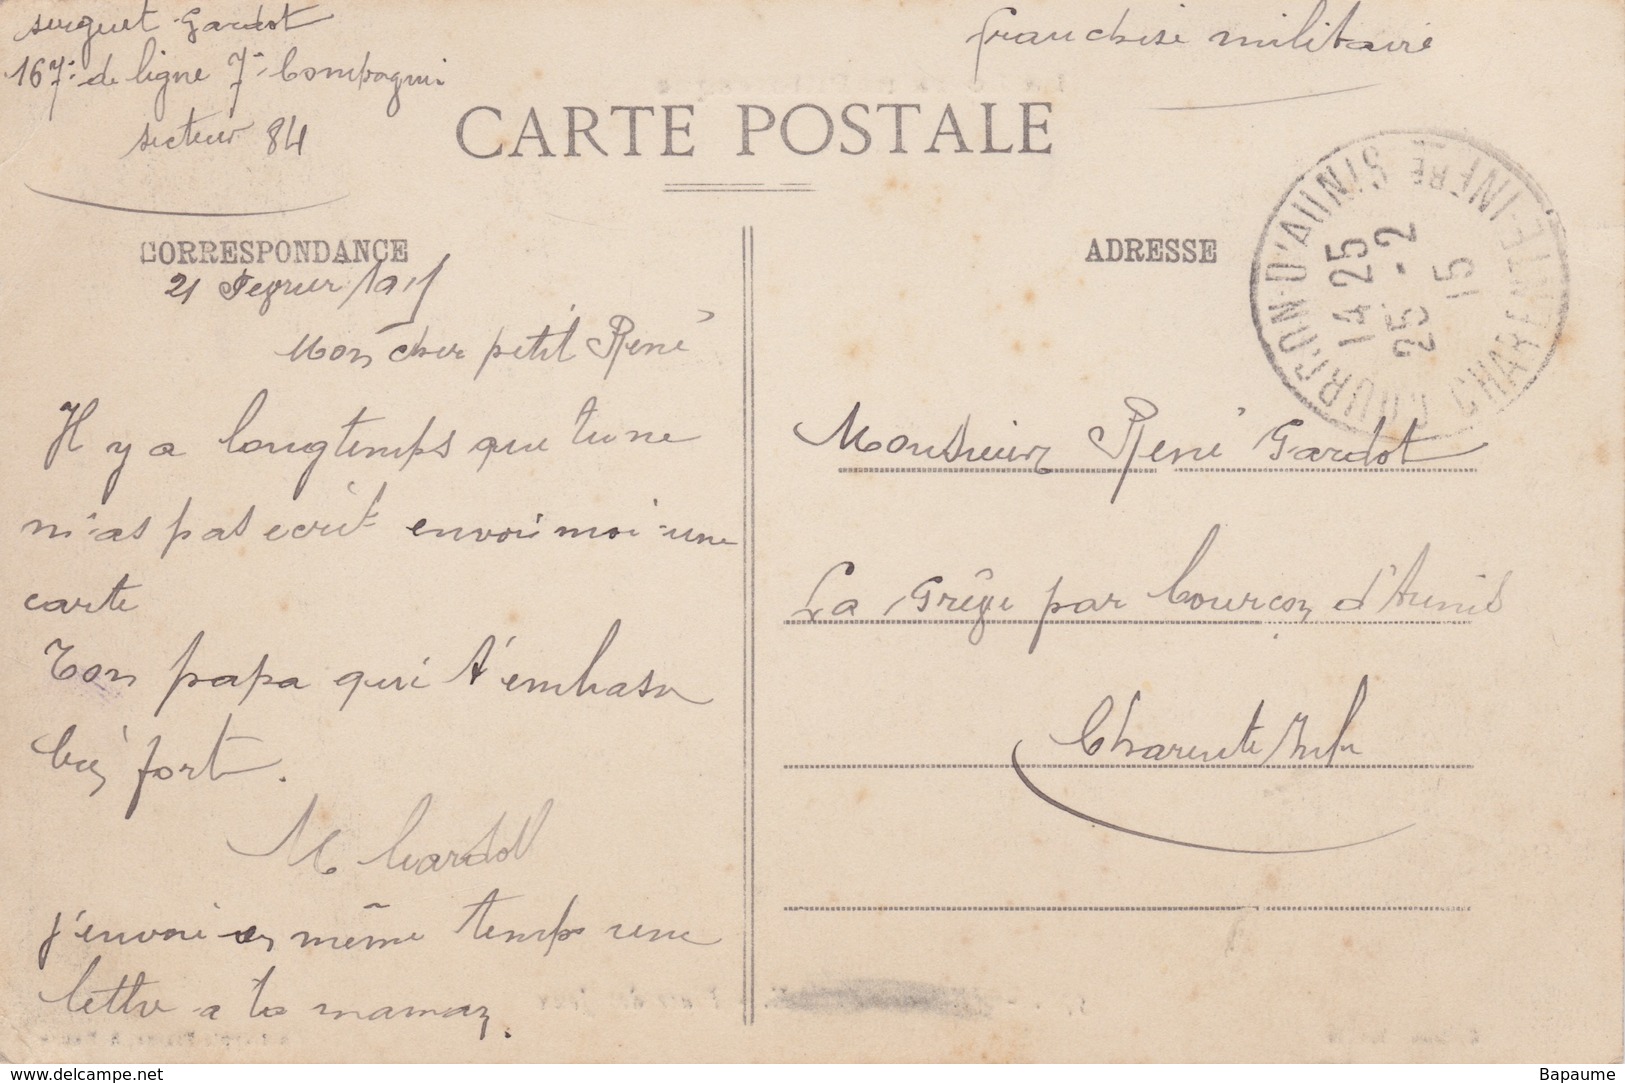 serguet Gardot
167e de ligne 7e Compagnie
secteur 84
franchise militaire
CARTE POSTALE
CORRESPONDANCE
21 Fevrier 1915
Mon cher petit René
Il y a longtemps que tu ne
m'as pas ecrit envoi moi une
carte
Ton papa qui t'embrasse
bien fort.
M Gardot
j'envoi en même temps une
lettre a ta maman.
ADRESSE
COURÇON-D'AUNIS
CHARENTE-INFRE
14 25
25 - 2
15
Monsieur René Gardot
La Grêve par Courçon d'Aunis
Charente Infre
www.delcampe.net
Bapaume